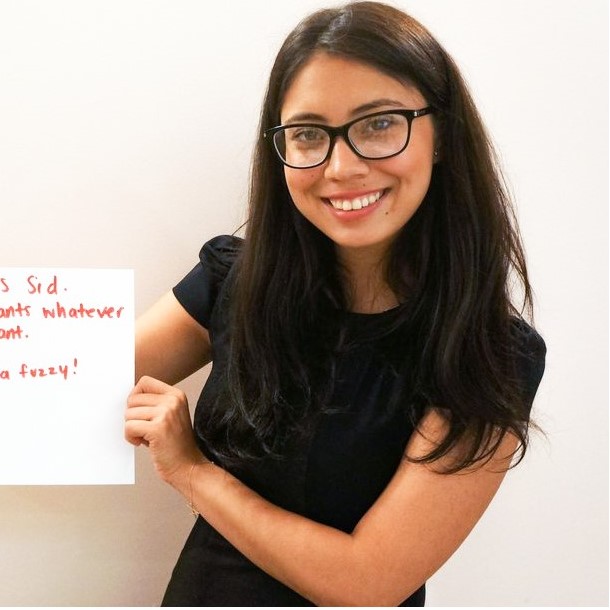 s Sid.
ants whatever
ant.
a fuzzy!